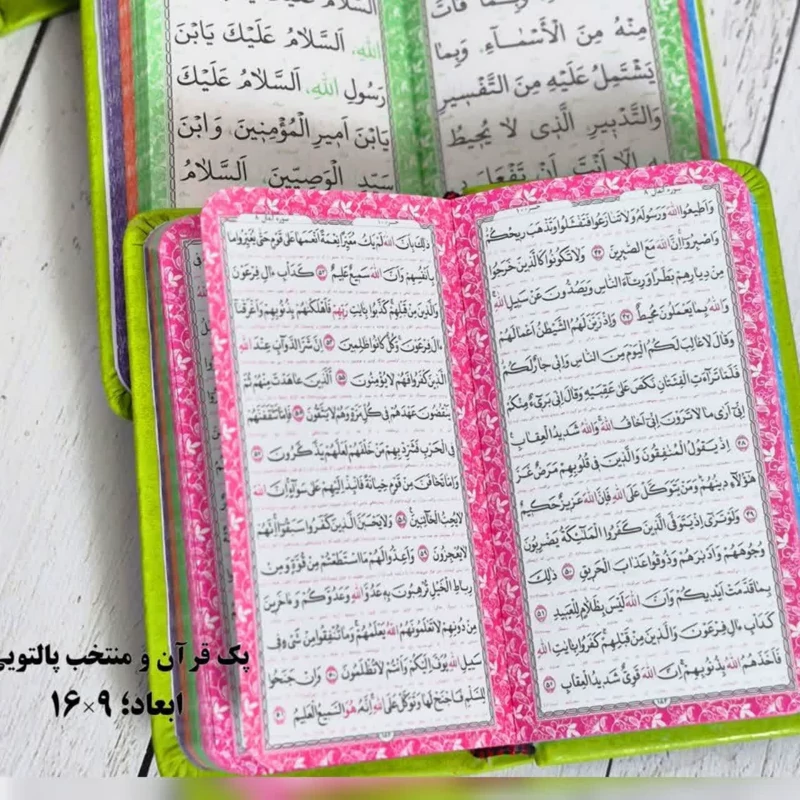 السلام عليك
الله، السلام عليك يابن
رسول الله، السلام عليك
يابن امير المؤمنين وابن
سيد الوصيين السلام
وبما فات
منه من الأسماء، وبما
يشتمل عليه من التفسير
والتدبير الذى لا يحيط
به الا انت ان تفعل بى
سوره انفال ٨
واطيعوا الله ورسوله ولا تنازعوا فتفشلوا وتذهب ريحكم
واصبروا ان الله مع الصبرين ٤٦ ولا تكونوا كالذين خرجوا
من ديارهم بطرا ورئاء الناس ويصدون عن سبيل الله
والله بما يعملون محيط ٤٧ واذ زين لهم الشيطن اعمالهم
وقال لا غالب لكم اليوم من الناس وانى جار لكم
فلما تراءت الفئتان نكص على عقبيه وقال انى برىء منكم
انى ارى ما لا ترون انى اخاف الله والله شديد العقاب
٤٨ اذ يقول المنفقون والذين فى قلوبهم مرض غر
هؤلاء دينهم ومن يتوكل على الله فان الله عزيز حكيم
٤٩ ولو ترى اذ يتوفى الذين كفروا الملئكة يضربون
وجوههم وادبرهم وذوقوا عذاب الحريق ٥٠ ذلك
بما قدمت ايديكم وان الله ليس بظلام للعبيد ٥١
كداب ءال فرعون والذين من قبلهم كفروا بايت الله
فاخذهم الله بذنوبهم ان الله قوى شديد العقاب ٥٢
سوره انفال ٨
ذلك بان الله لم يك مغيرا نعمة انعمها على قوم حتى يغيروا ما
بانفسهم وان الله سميع عليم ٥٣ كداب ءال فرعون
والذين من قبلهم كذبوا بايت ربهم فاهلكنهم بذنوبهم واغرقنا
ءال فرعون وكل كانوا ظلمين ٥٤ ان شر الدواب عند الله
الذين كفروا فهم لا يؤمنون ٥٥ الذين عاهدت منهم ثم
ينقضون عهدهم فى كل مرة وهم لا يتقون ٥٦ فاما تثقفنهم
فى الحرب فشرد بهم من خلفهم لعلهم يذكرون ٥٧
واما تخافن من قوم خيانة فانبذ اليهم على سواء ان الله
لا يحب الخائنين ٥٨ ولا يحسبن الذين كفروا سبقوا انهم
لا يعجزون ٥٩ واعدوا لهم ما استطعتم من قوة ومن
رباط الخيل ترهبون به عدو الله وعدوكم وءاخرين
من دونهم لا تعلمونهم الله يعلمهم وما تنفقوا من شىء فى
سبيل الله يوف اليكم وانتم لا تظلمون ٦٠ وان جنحوا
للسلم فاجنح لها وتوكل على الله انه هو السميع العليم ٦١
پک قرآن و منتخب پالتویی
ابعاد؛ ۹×۱۶